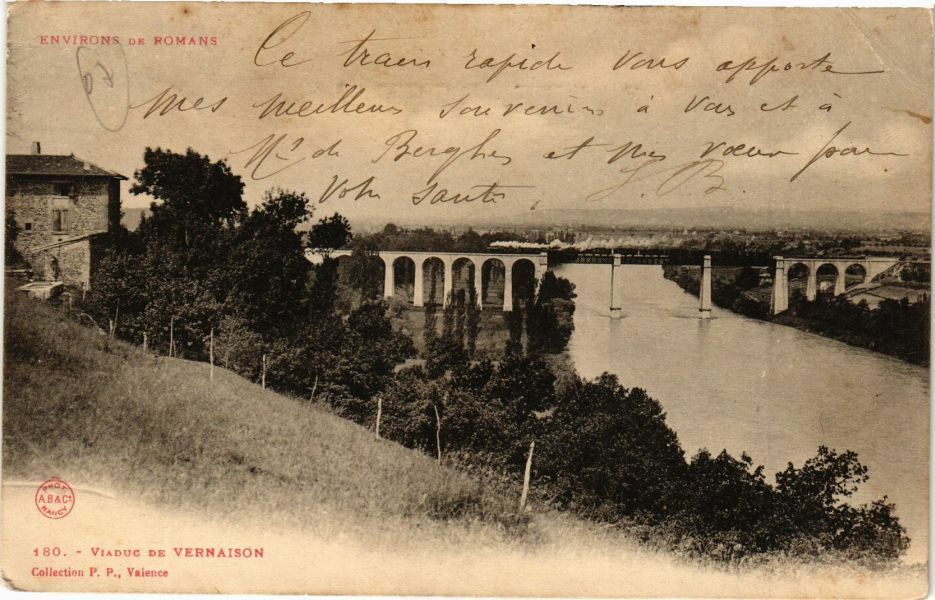 ENVIRONS DE ROMANS
Ce train rapide vous apporte
mes meilleurs souvenirs à vous et à
Mr de Berghes et mes vœux pour
votre santé.
S. B.
PHOT
A.B & Cie
NANCY
180. - VIADUC DE VERNAISON
Collection P. P., Valence